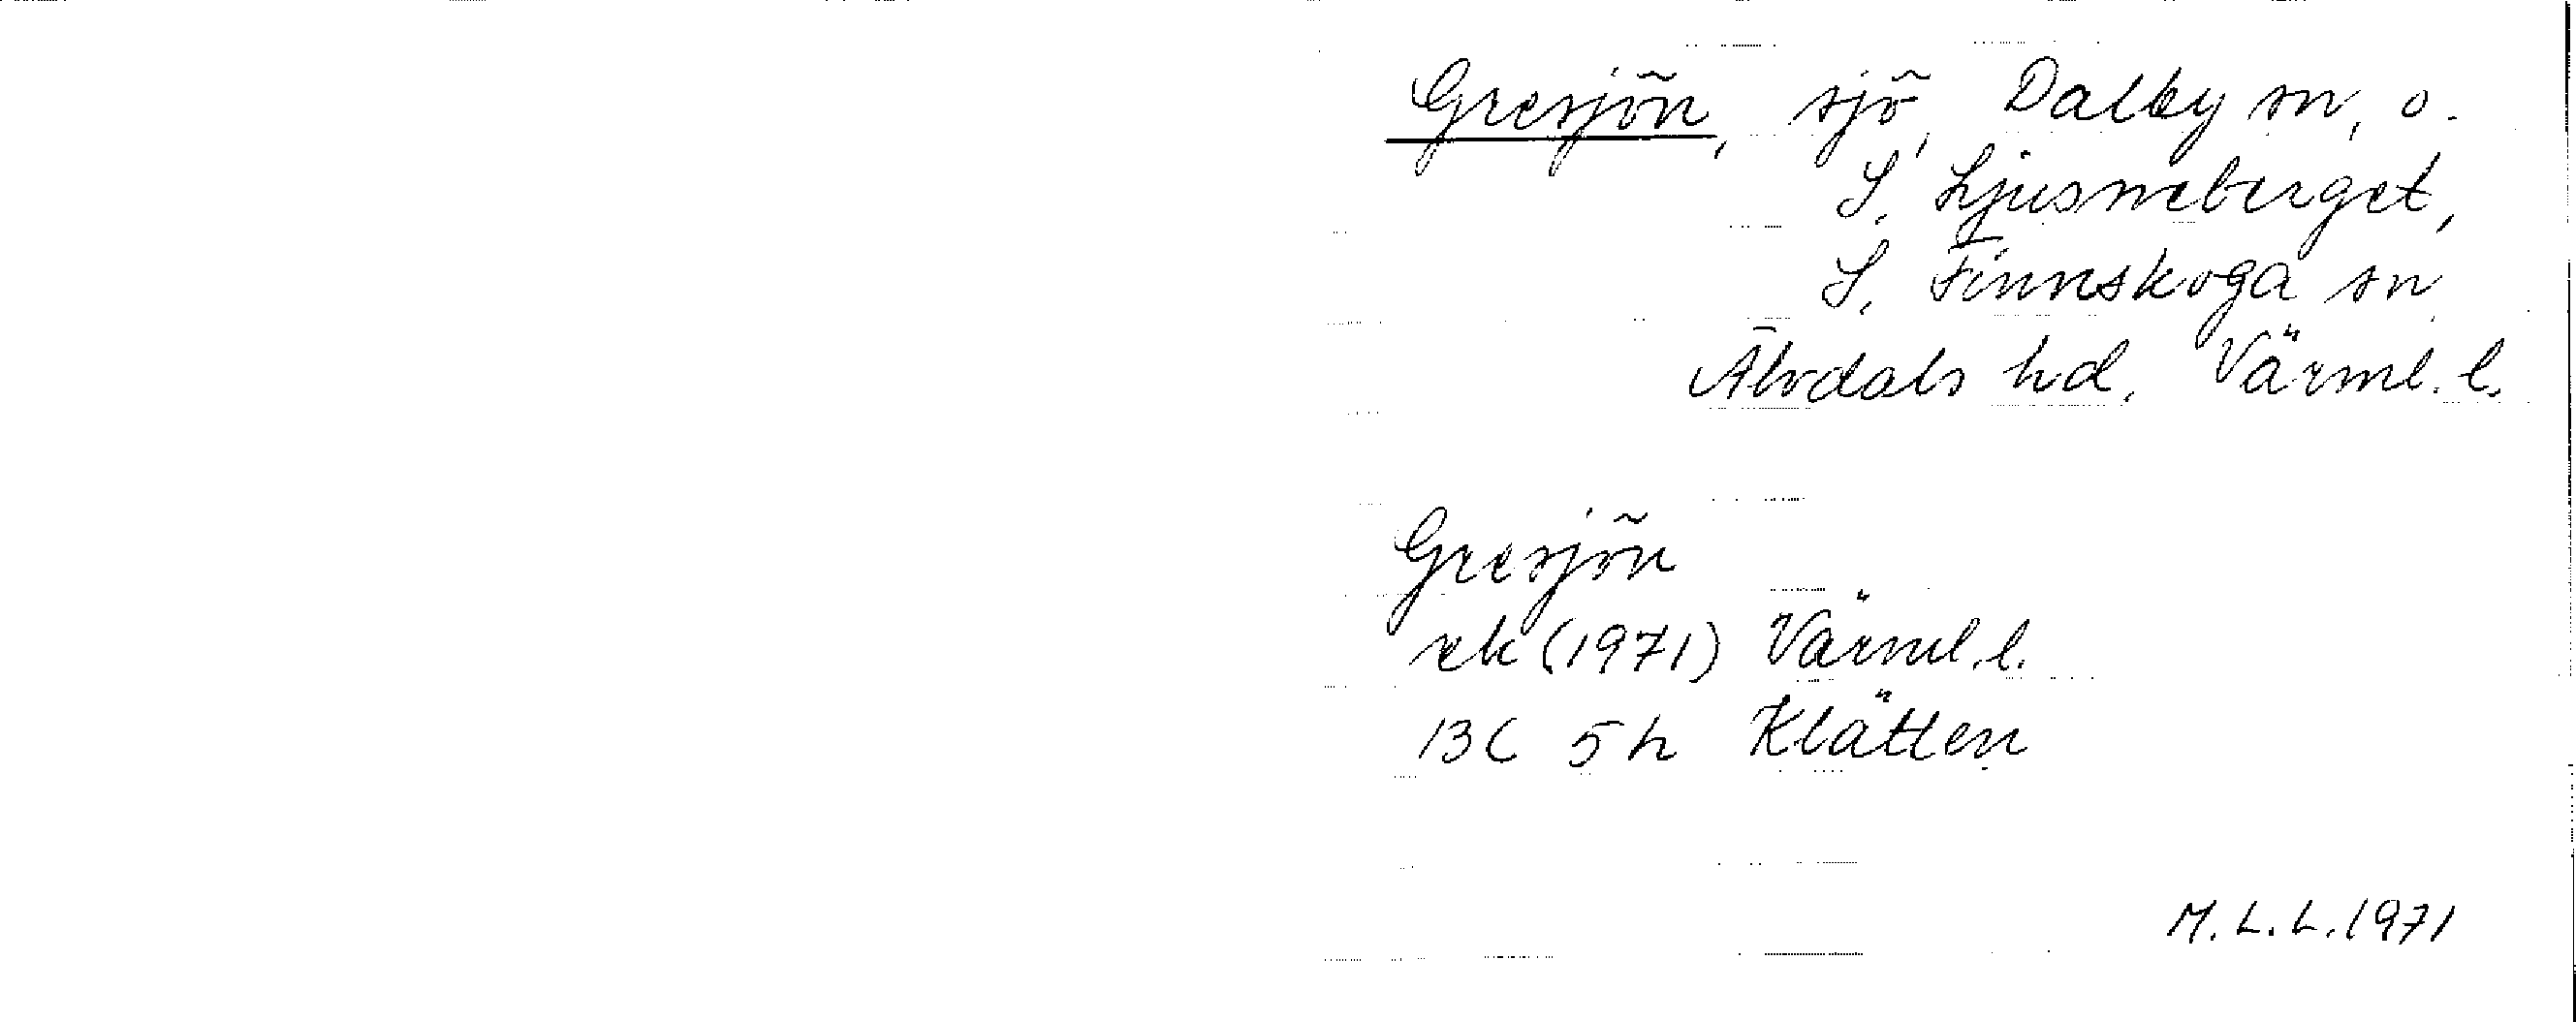 Gresjön, sjö, Dalby sn, o.
S. Ljusneberget,
S. Finnskoga sn
Älvdals hd, Värml. l.
Gresjön
ek (1971) Värml. l.
13C 5h Klätten
M.L.L. 1971